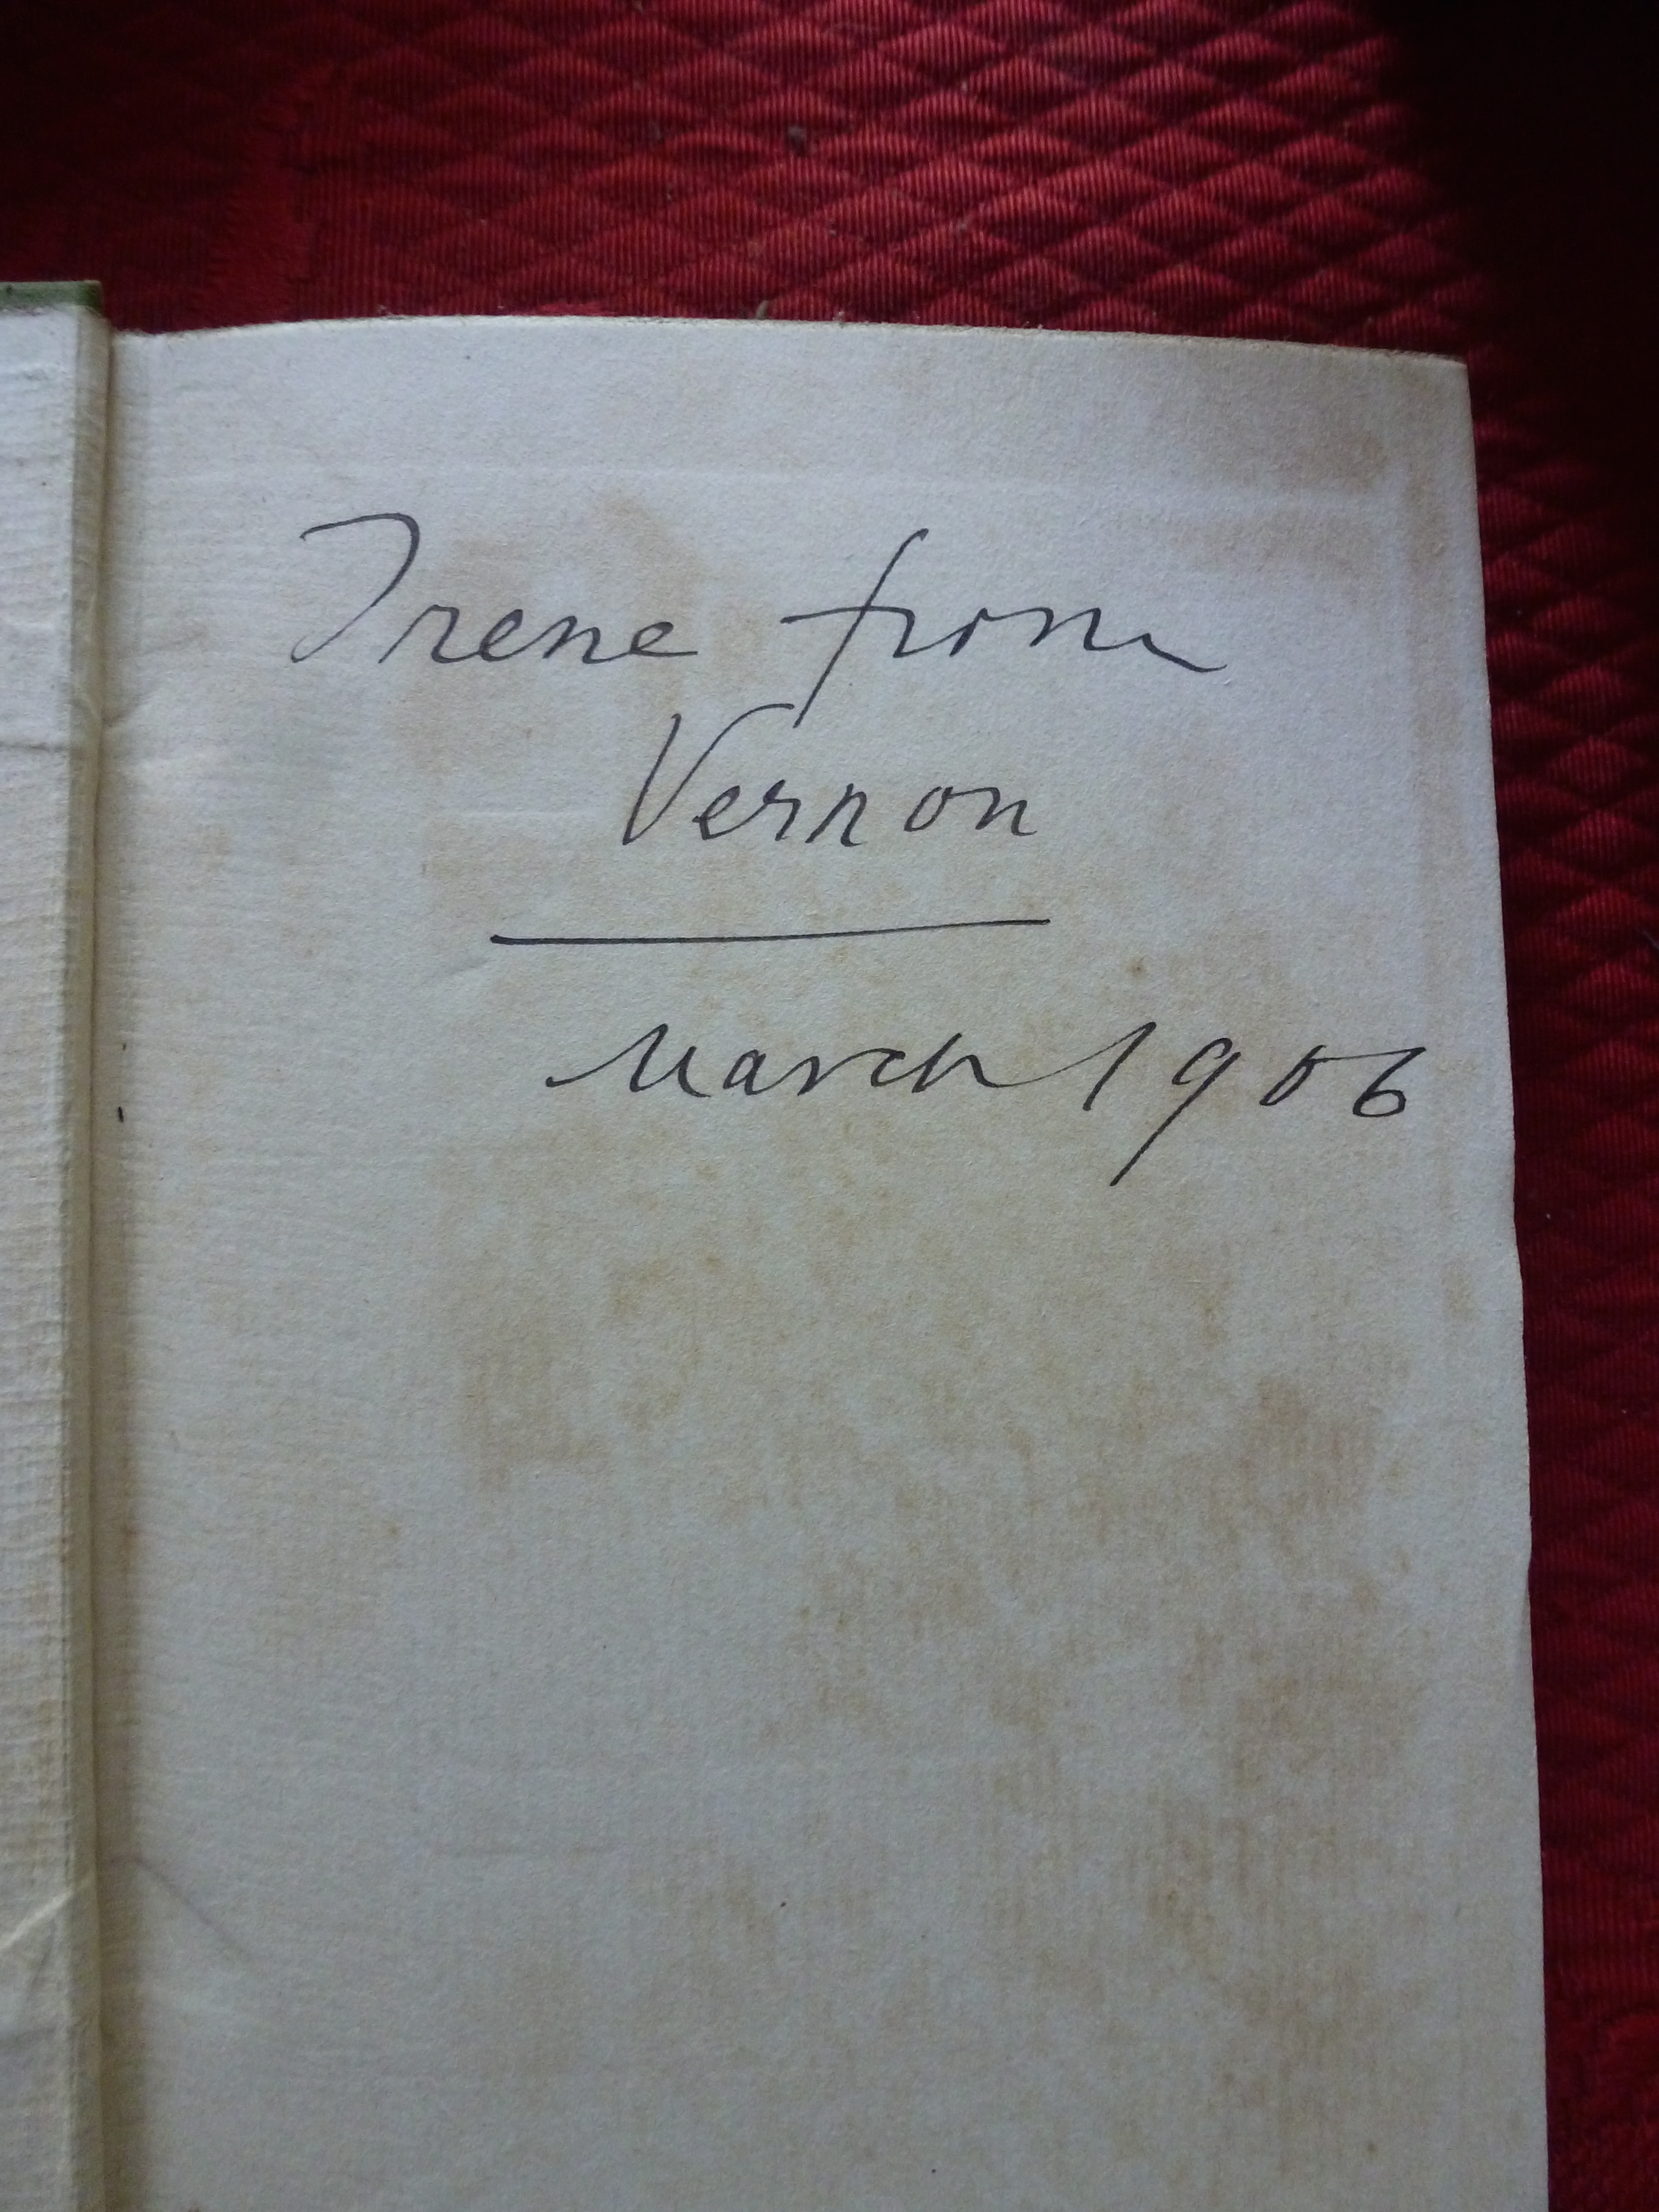 Irene from
Vernon
March 1906